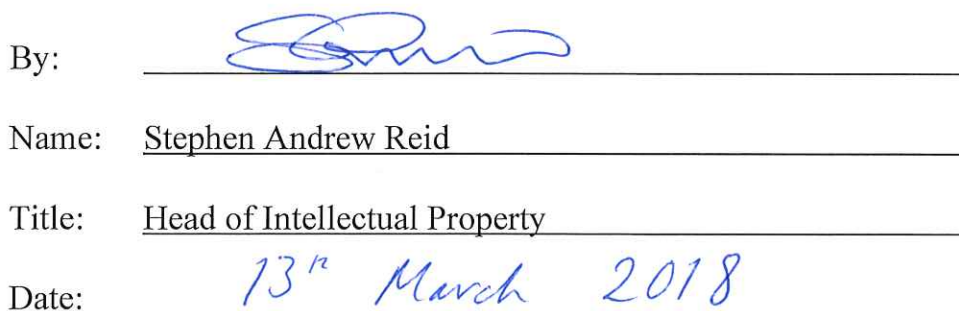 By:
Name: Stephen Andrew Reid
Title: Head of Intellectual Property
Date: 13th March 2018